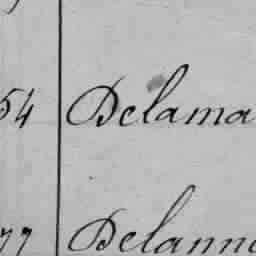 54 Delama
77 Delann